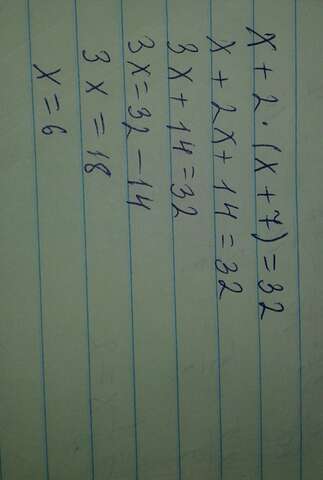 x + 2 · (x + 7) = 32
x + 2x + 14 = 32
3x + 14 = 32
3x = 32 - 14
3x = 18
x = 6